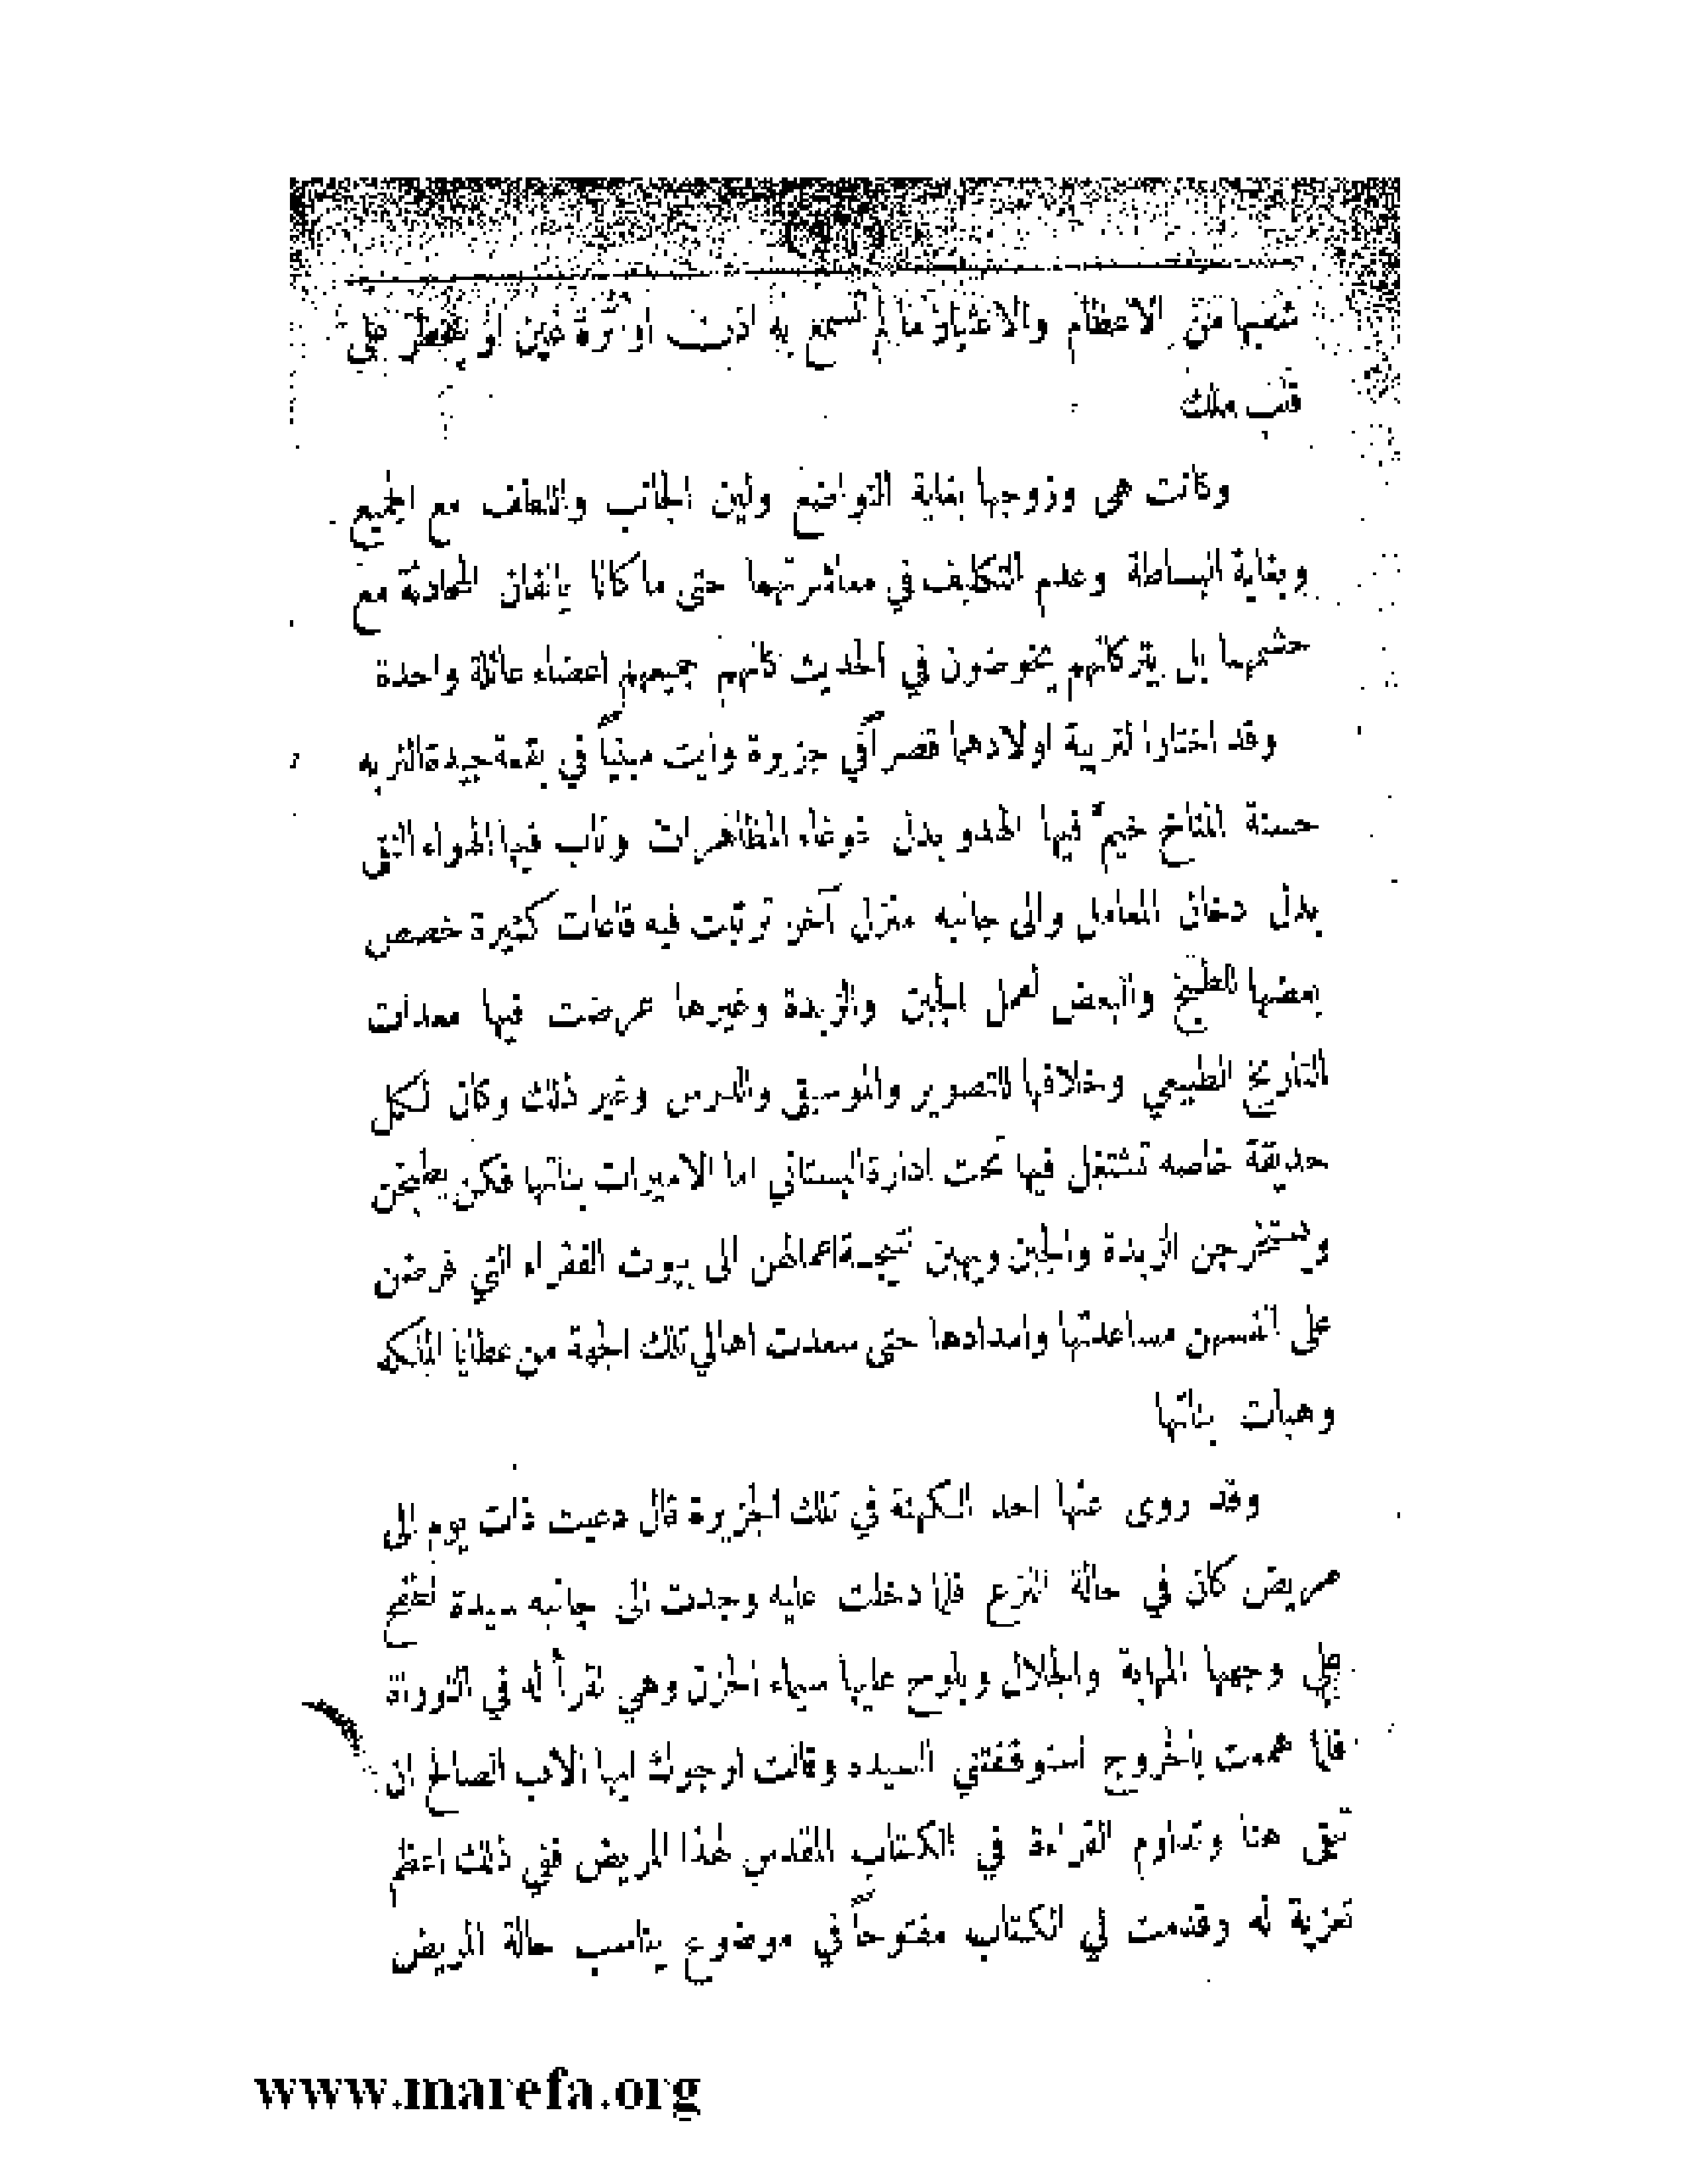 شعبها من الاعظام والاعتبار ما لم تسمع به اذن او تره عين او يخطر على
قلب ملك
وكانت هى وزوجها بغاية التواضع ولين الجانب واللطف مع الجميع
وبغاية البساطة وعدم التكليف في معاشرتهما حتى ما كانا يانفان المحادثة مع
حشمهما بل يتركانهم يخوضون في الحديث كانهم جميعهم اعضاء عائلة واحدة
وقد اختارا لتربية اولادهما قصراً في جزيرة وايت مبنياً في بقعة جيدة التربه
حسنة المناخ خيمّ فيها الهدو بدل غوغاء المظاهرات وناب فيها الهواء النقى
بدل دخان المعامل والى جانبه منزل آخر ترتبت فيه قاعات كثيرة خصص
بعضها للطبخ والبعض لعمل الجبن والزبدة وغيرها عرضت فيها معدات
التاريخ الطبيعي وخلافها للتصوير والموسيقى والدرس وغير ذلك وكان لكل
حديقة خاصه تشتغل فيها تحت ادارة البستاني اما الاميرات بناتها فكن يطبخن
ويستخرجن الزبدة والجبن ويهبن نتيجة اعمالهن الى بيوت الفقراء التي فرضن
على انفسهن مساعدتها وامدادها حتى سعدت اهالي تلك الجهة من عطايا الملكه
وهبات بناتها
وقد روى عنها احد الكهنة في تلك الجزيرة قال دعيت ذات يوم الى
مريض كان في حالة النزع فلما دخلت عليه وجدت الى جانبه سيدة
على وجهها المهابة والجلال ويلوح عليها سيماء الحزن وهي تقرأ له في التوراة
فلما هممت بالخروج استوقفتني السيده وقالت ارجوك ايها الاب الصالح ان
تبقى هنا وتداوم القراءة في الكتاب المقدس لهذا المريض ففي ذلك اعظم
تعزية له وقدمت لي الكتاب مفتوحاً في موضوع يناسب حالة المريض
www.marefa.org